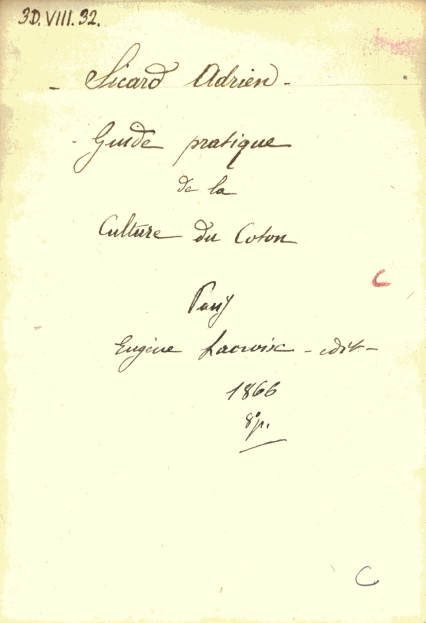 3D. VIII. 32.
- Sicard Adrien -
- Guide pratique
de la
Culture du Coton
C
Eugène Lacroix - edit -
1866
8°p.
C